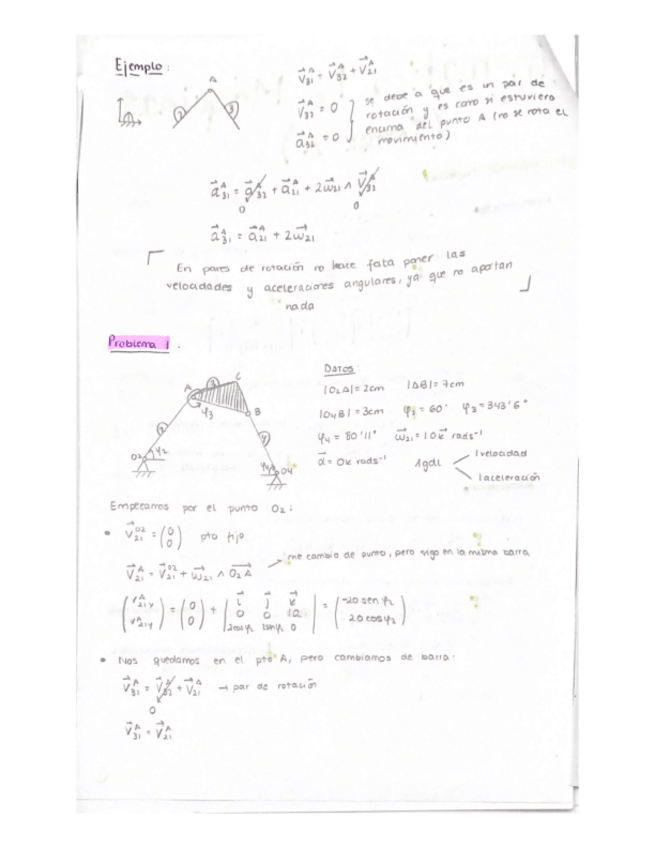 Ejemplo:
A
1
2
3
V⃗31^A = V⃗32^A + V⃗21^A
V⃗32^A = 0
a⃗32^A = 0
se debe a que es un par de
rotación y es como si estuviera
encima del punto A (no se rota el
movimiento)
a⃗31^A = a⃗32^A + a⃗21^A + 2ω⃗21 ∧ V⃗32^A
0 0
a⃗31^A = a⃗21^A + 2ω⃗21
En pares de rotación no hace falta poner las
velocidades y aceleraciones angulares, ya que no aportan
nada
Problema 1.
A
3
C
φ3
B
2
4
O2
φ2
φ4
O4
Datos:
|O2A| = 2cm |AB| = 7cm
|O4B| = 3cm φ2 = 60° φ3 = 343'6°
φ4 = 80'11° ω⃗21 = 10k⃗ rads⁻¹
α⃗ = 0k rads⁻¹ 1gdl
1 velocidad
1 aceleración
Empezamos por el punto O2:
• V⃗21^O2 = (0 0) pto fijo
V⃗21^A = V⃗21^O2 + ω⃗21 ∧ O2A
me cambio de punto, pero sigo en la misma barra
(V21x^A V21y^A) = (0 0) + | i⃗ j⃗ k⃗ 0 0 10 2cosφ2 2senφ2 0 | = (-20 sen φ2 20 cos φ2)
• Nos quedamos en el pto A, pero cambiamos de barra:
V⃗31^A = V⃗32^A + V⃗21^A → par de rotación
0
V⃗31^A = V⃗21^A